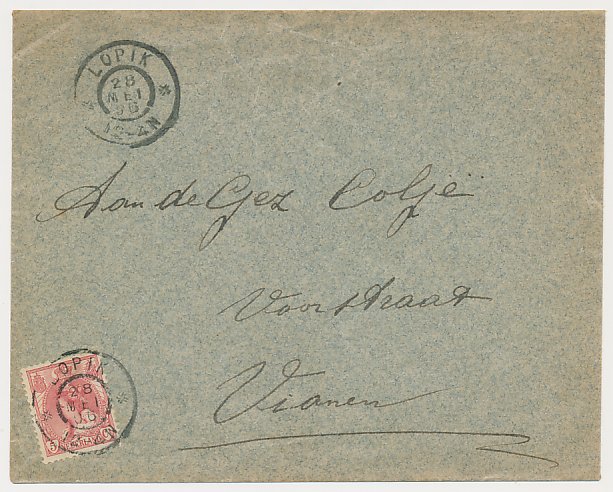 LOPIK
28
MEI
12-4N
Aan de Gez Coljé
Voorstraat
Vianen
LOPIK
28
MEI
5